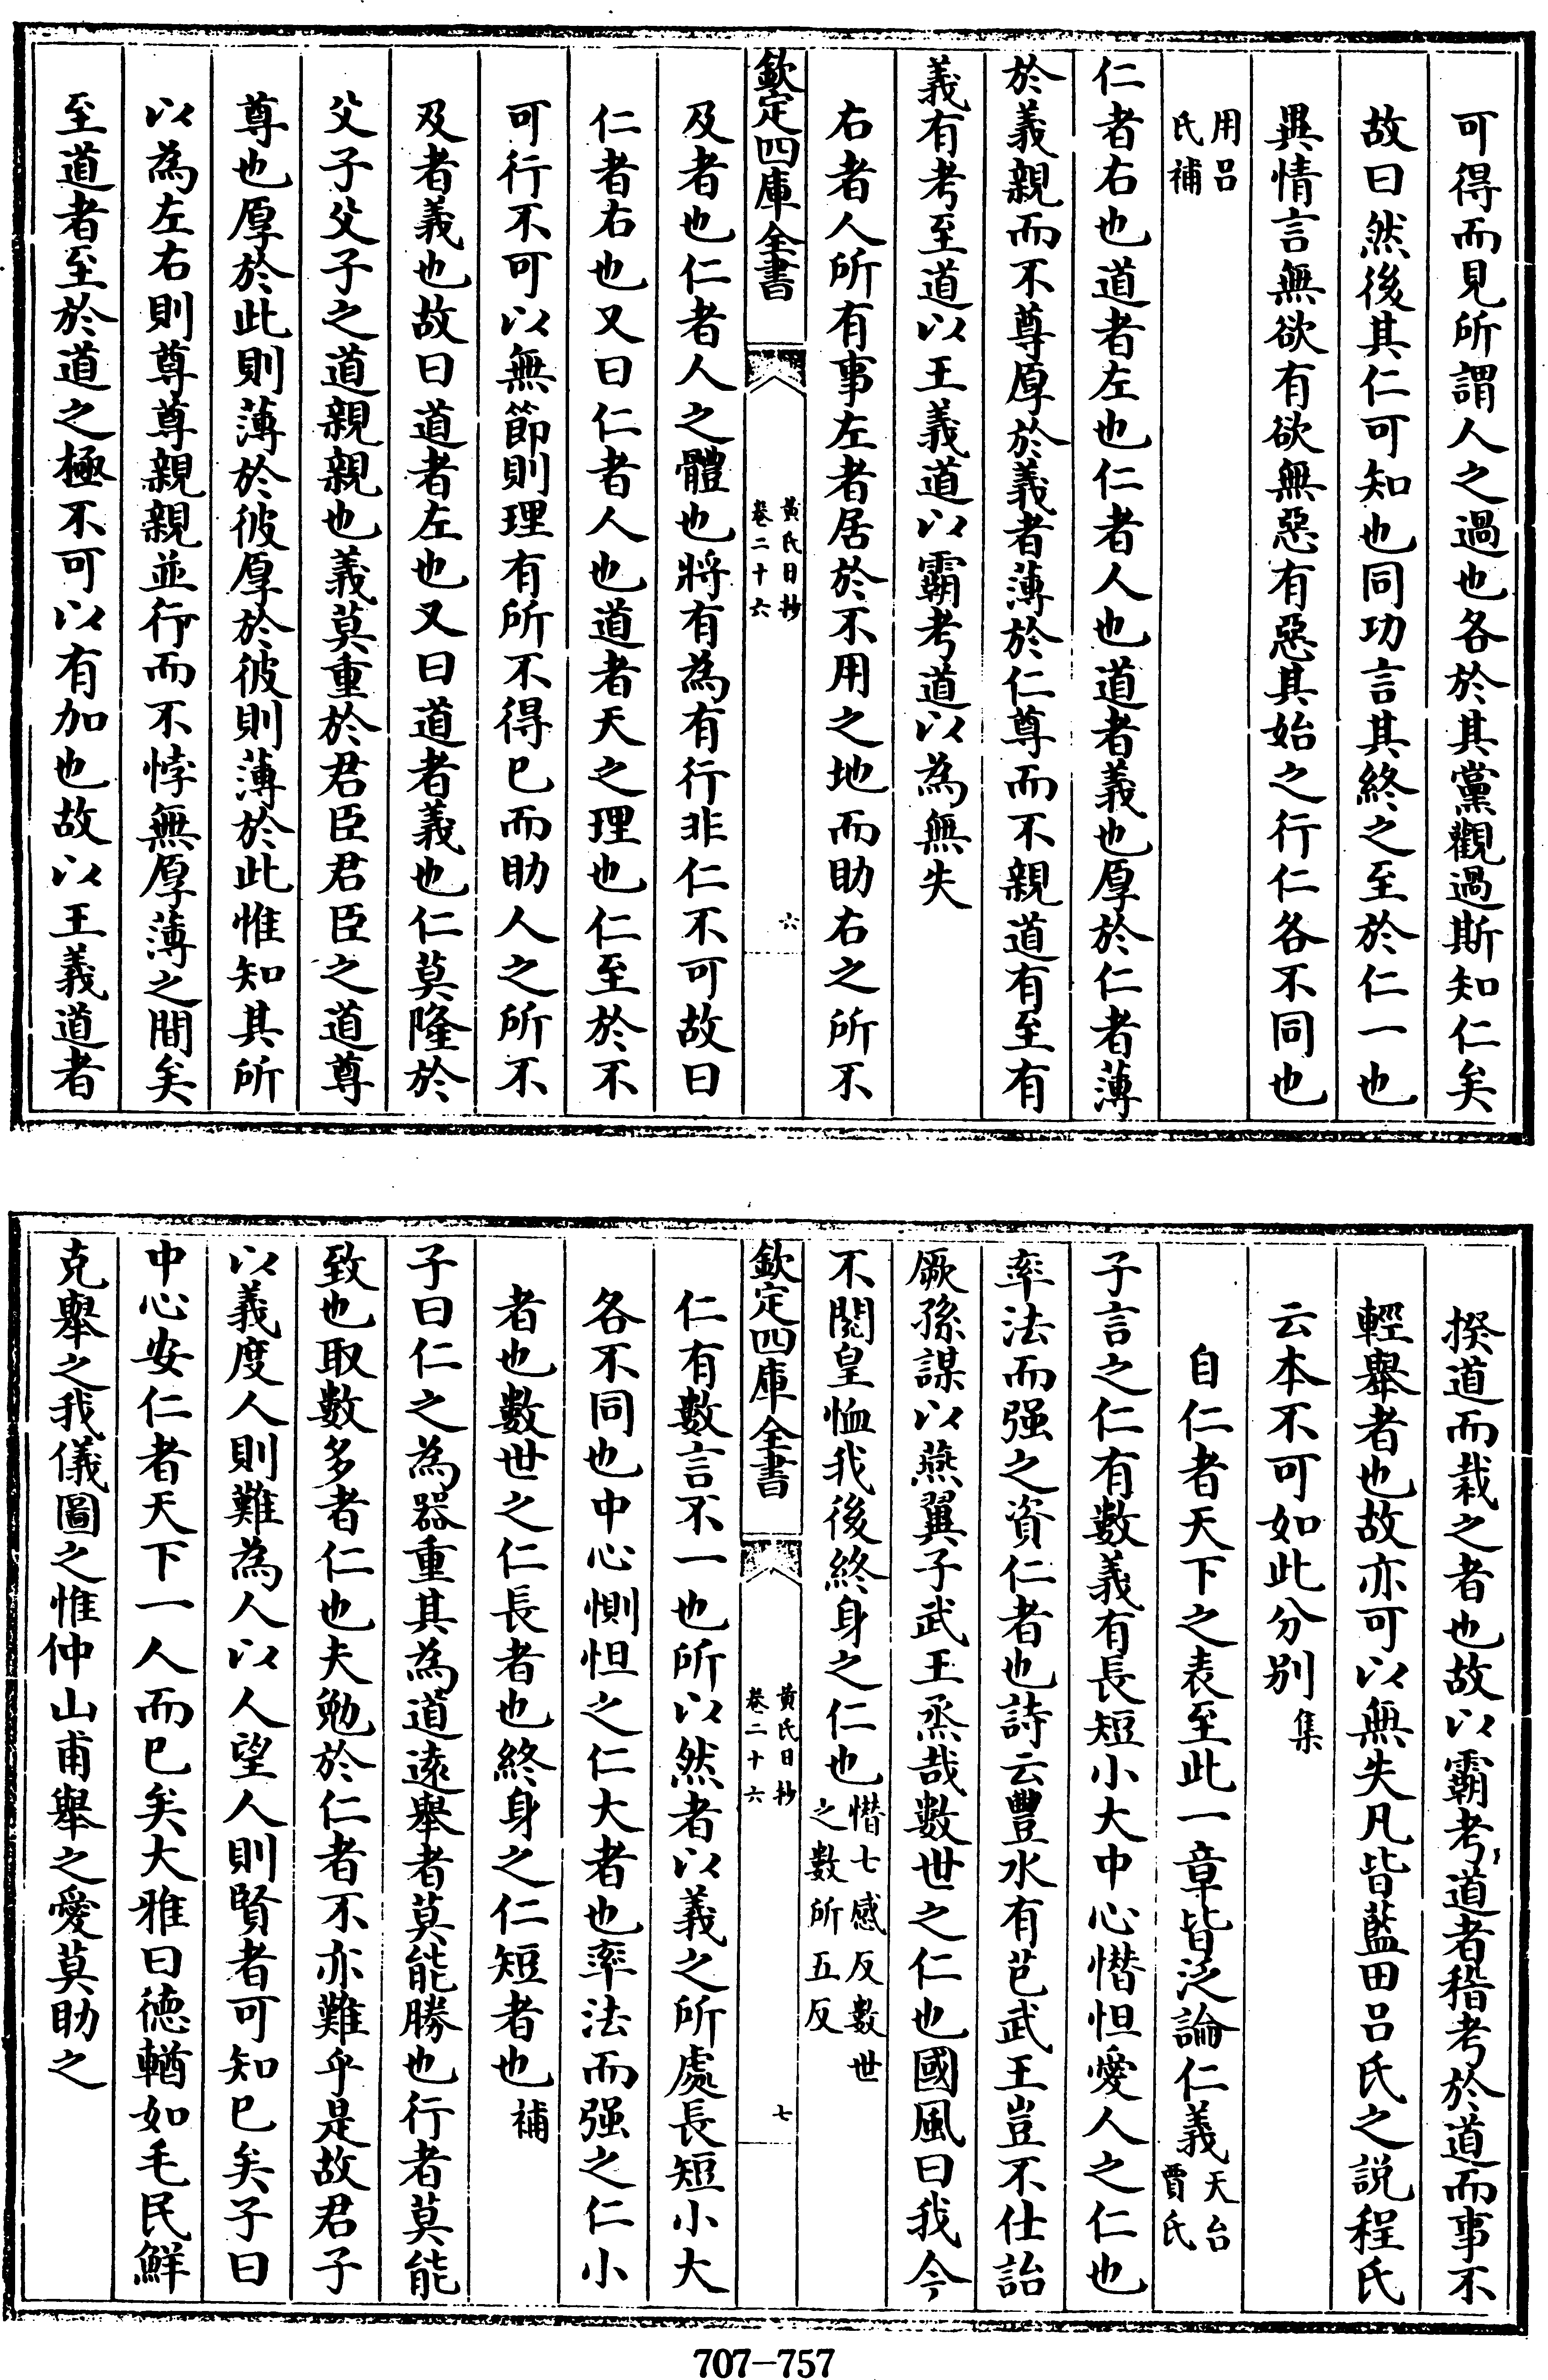 可得而見所謂人之過也各於其黨觀過斯知仁矣
故曰然後其仁可知也同功言其終之至於仁一也
異情言無欲有欲無惡有惡其始之行仁各不同也
用吕
氏補
仁者右也道者左也仁者人也道者義也厚於仁者薄
於義親而不尊厚於義者薄於仁尊而不親道有至有
義有考至道以王義道以霸考道以為無失
右者人所有事左者居於不用之地而助右之所不
欽定四庫全書
黄氏日抄
卷二十六
六
及者也仁者人之體也將有為有行非仁不可故曰
仁者右也又曰仁者人也道者天之理也仁至於不
可行不可以無節則理有所不得已而助人之所不
及者義也故曰道者左也又曰道者義也仁莫隆於
父子父子之道親親也義莫重於君臣君臣之道尊
尊也厚於此則薄於彼厚於彼則薄於此惟知其所
以為左右則尊尊親親並行而不悖無厚薄之間矣
至道者至於道之極不可以有加也故以王義道者
揆道而裁之者也故以霸考道者稽考於道而事不
輕舉者也故亦可以無失凡皆藍田吕氏之説程氏
云本不可如此分别集
自仁者天下之表至此一章皆泛論仁義天台
賈氏
子言之仁有數義有長短小大中心憯怛愛人之仁也
率法而强之資仁者也詩云豐水有芑武王豈不仕詒
厥孫謀以燕翼子武王烝哉數世之仁也國風曰我今
不閲皇恤我後終身之仁也憯七感反數世
之數所五反
欽定四庫全書
黄氏日抄
卷二十六
七
仁有數言不一也所以然者以義之所處長短小大
各不同也中心惻怛之仁大者也率法而强之仁小
者也數世之仁長者也終身之仁短者也補
子曰仁之為器重其為道遠舉者莫能勝也行者莫能
致也取數多者仁也夫勉於仁者不亦難乎是故君子
以義度人則難為人以人望人則賢者可知已矣子曰
中心安仁者天下一人而已矣大雅曰德輶如毛民鮮
克舉之我儀圖之惟仲山甫舉之愛莫助之
707-757